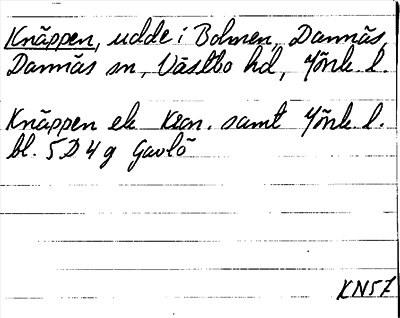 Knäppen, udde i Bolmen, Dannäs,
Dannäs sn, Västbo hd, Jönk. l.
Knäppen ek Kron. samt Jönk. l.
bl. 5D 4g Gavlö
KN57